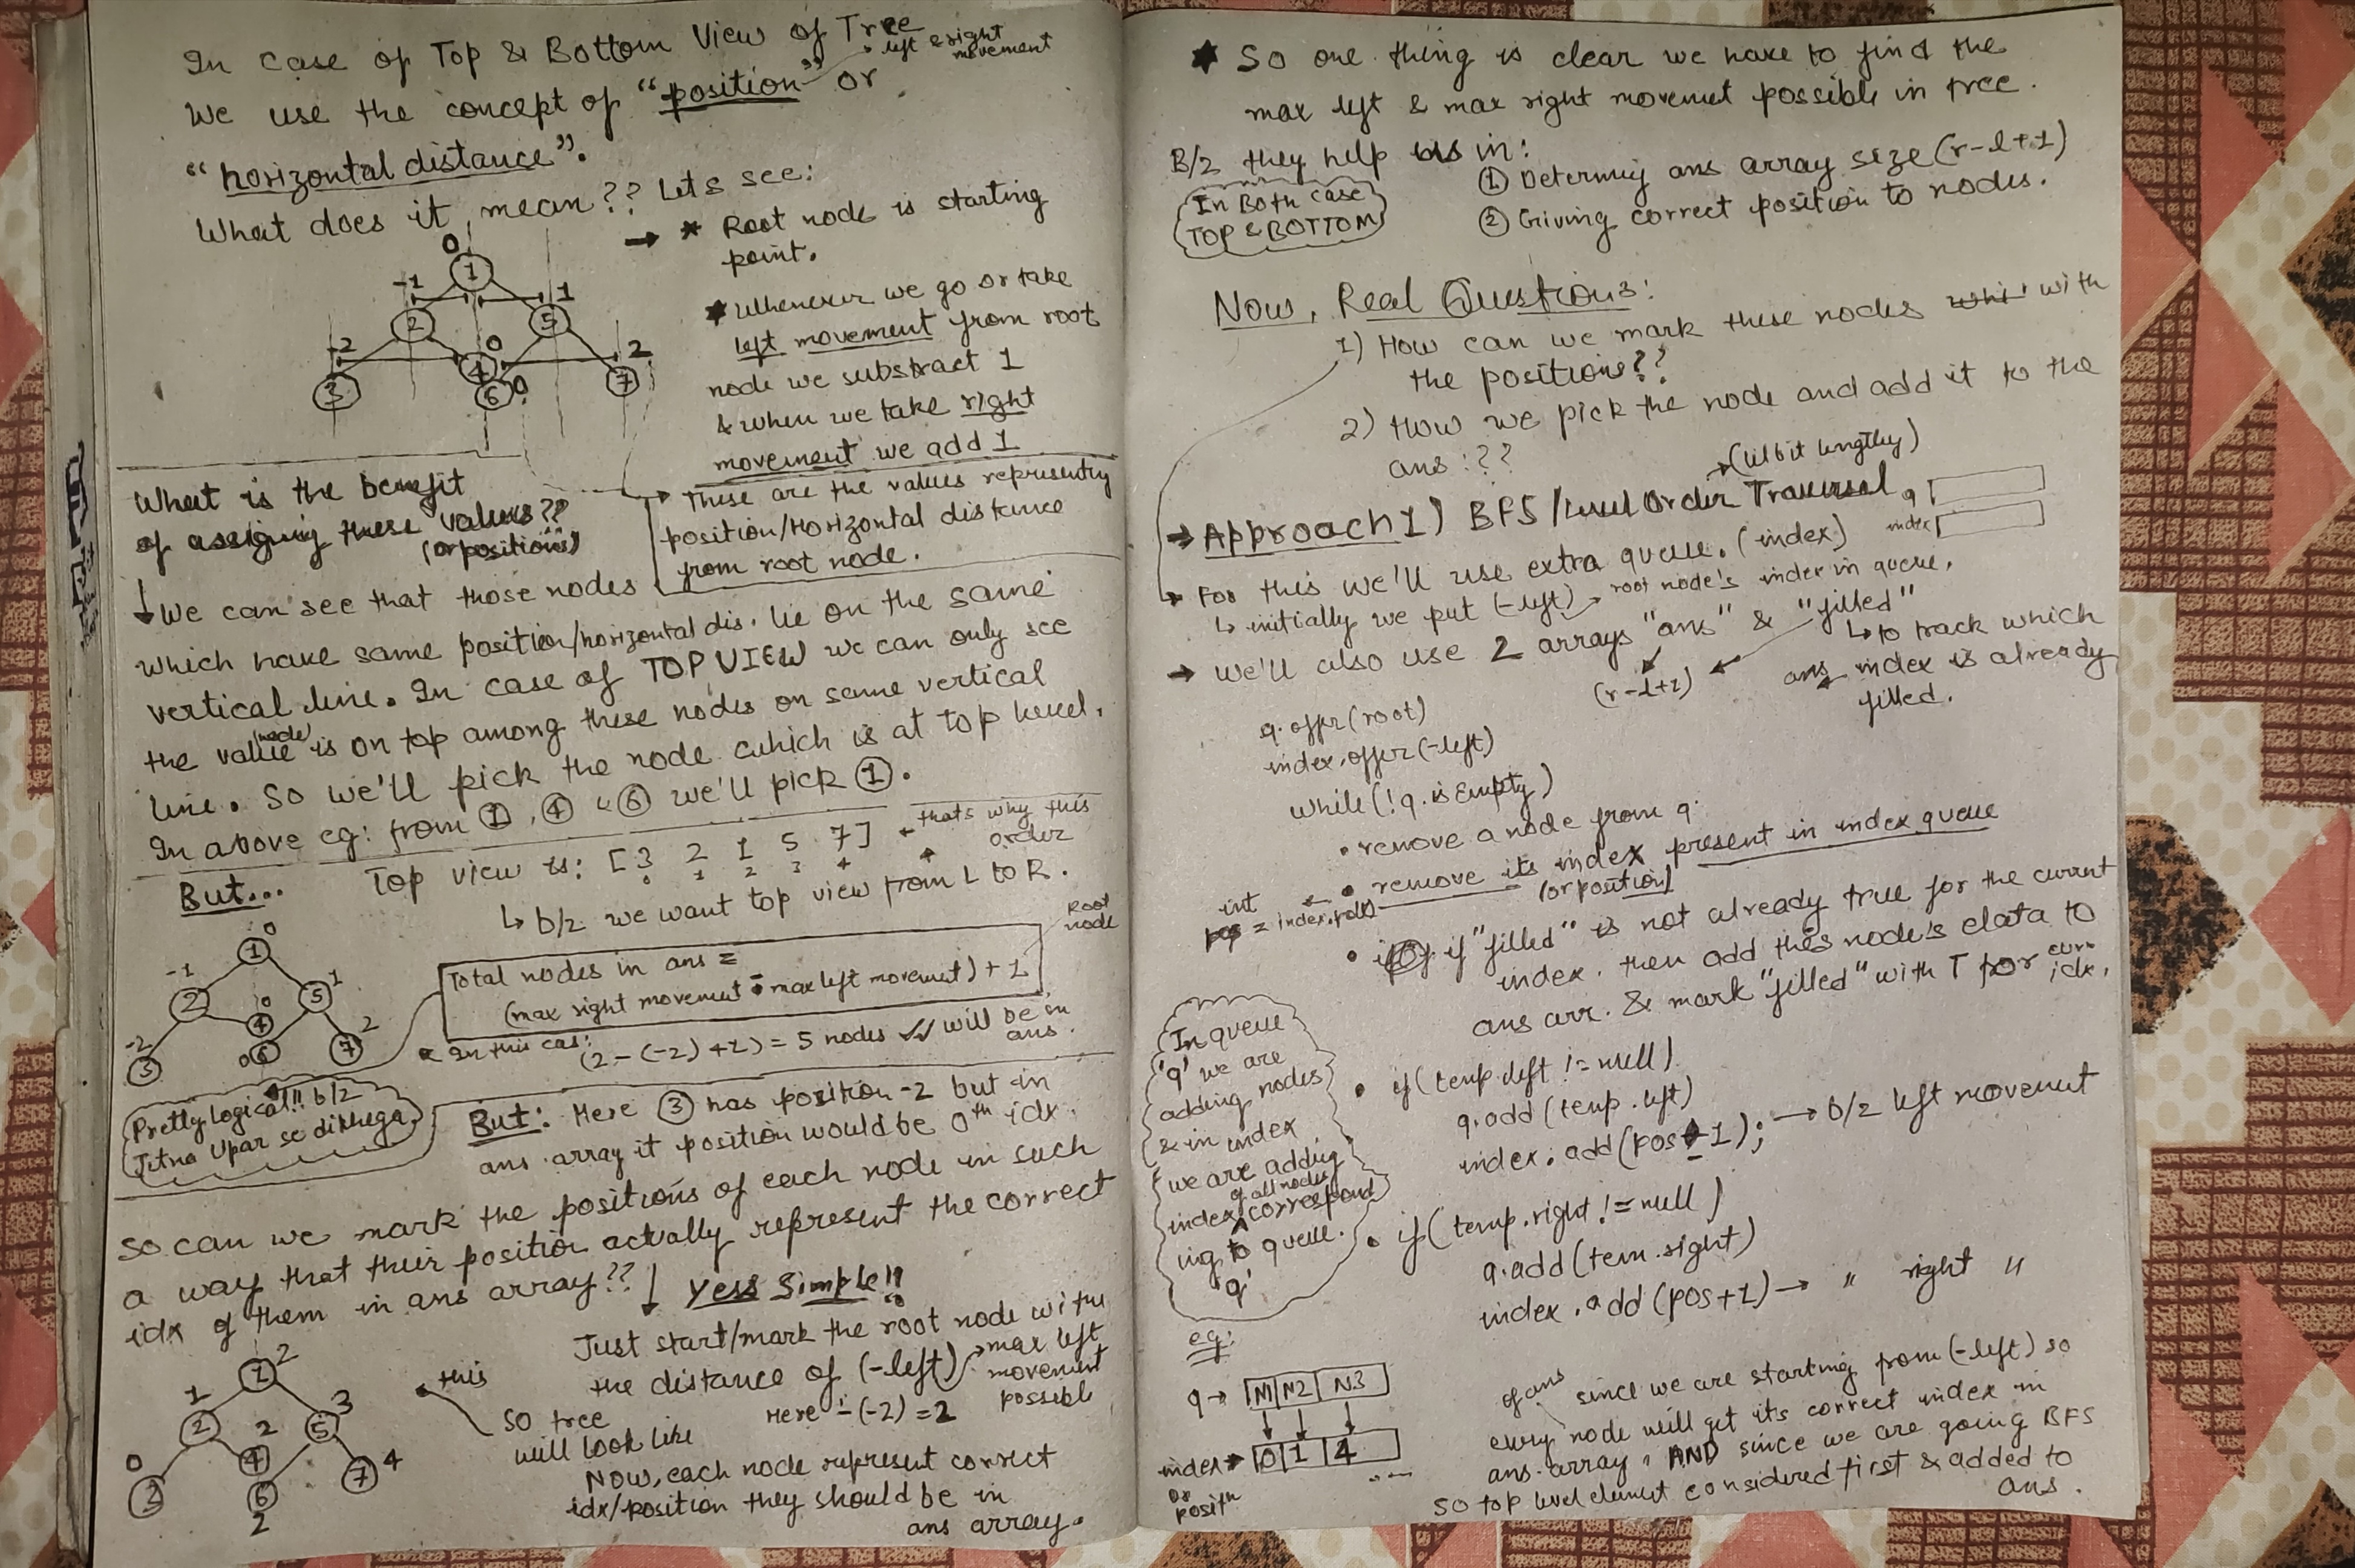 In case of Top & Bottom View of Tree
left & right movement
We use the concept of "position" or
"horizontal distance".
What does it mean?? Lets see:
→ * Root node is starting
point.
* Whenever we go or take
left movement from root
node we substract 1
& when we take right
movement we add 1
0
1
-1
1
2
5
-2
0
2
3
4
6
0
7
What is the benefit
of assigning these values??
(or positions)
→ These are the values representing
position/Horizontal distance
from root node.
↓ We can see that those nodes
which have same position/horizontal dis. lie on the same
vertical line. In case of TOP VIEW we can only see
the value (node) is on top among these nodes on same vertical
line. So we'll pick the node which is at top level.
In above eg: from ①, ④ & ⑥ we'll pick ①.
But...
Top view is: [3 2 1 5 7] ← thats why this
order
0 1 2 3 4
↳ b/z we want top view from L to R.
Root
node
0
1
-1
2
5
1
-2
0
4
2
3
0
6
7
Total nodes in ans =
(max right movement - max left movement) + 1
* In this cas:
(2 - (-2) + 1) = 5 nodes will be in
ans.
Pretty logical!! b/z
Jitna Upar se dikhega
But: Here ③ has position -2 but in
ans array it position would be 0th idx.
So can we mark the positions of each node in such
a way that their position actually represent the correct
idx of them in ans array??
↓ Yess Simple!!
Just start/mark the root node with
the distance of (-left) → max left
movement
possible
Here = -(-2) = 2
this
So tree
will look like
1
2
1
2
2
5
3
0
4
3
6
2
7
4
Now, each node represent correct
idx/position they should be in
ans array.
* So one thing is clear we have to find the
max left & max right movement possible in tree.
B/z they help us in:
In Both case
TOP & BOTTOM
① Determing ans array size (r-l+1)
② Giving correct position to nodes.
Now, Real Questions:
1) How can we mark these nodes with
the positions??
2) How we pick the node and add it to the
ans:??
→ (lil bit lengthy)
→ Approach 1) BFS/Level Order Traversal
q
index
→ For this we'll use extra queue. (index)
↳ initially we put (-left) → root node's index in queue.
→ we'll also use 2 arrays "ans" & "filled"
(r-l+1)
↳ to track which
ans index is already
filled.
q.offer(root)
index.offer(-left)
while(!q.isEmpty)
• remove a node from q.
• remove its index present in index queue
(or position)
int
pos = index.poll()
• if "filled" is not already true for the current
index. then add this node's data to
ans arr. & mark "filled" with T for curr
idx.
In queue
'q' we are
adding nodes
& in index
we are adding
index of all nodes correspond
ing to queue.
'q'
• if(temp.left != null)
q.add(temp.left)
index.add(pos-1); → b/z left movement
• if(temp.right != null)
q.add(tem.right)
index.add(pos+1) → " right "
eg:
q → N1 N2 N3
index → 0 1 4
or
positn
since we are starting from (-left) so
every node will get its correct index in
of ans
ans array, AND since we are going BFS
so top level element considered first & added to
ans.